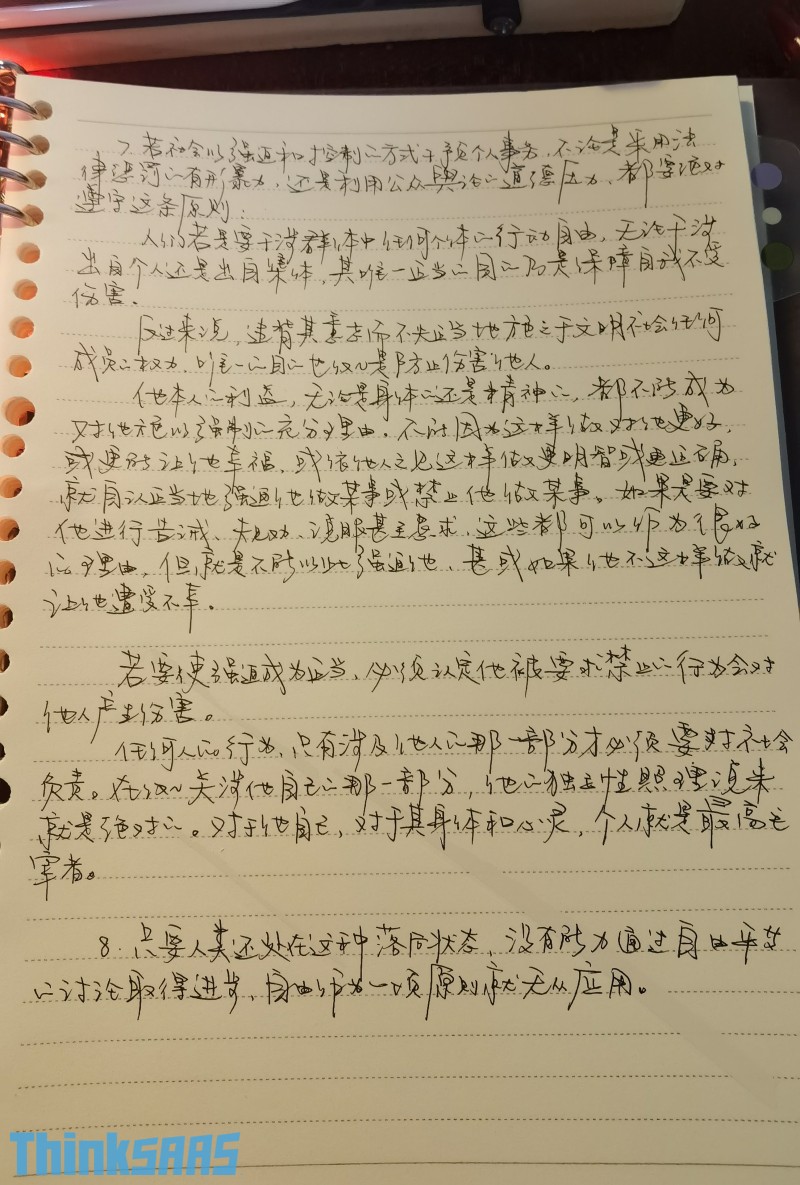 7. 若社会以强迫和控制的方式干预个人事务,不论是采用法
律惩罚的有形暴力,还是利用公众舆论的道德压力,都要绝对
遵守这条原则:
人们若是要干涉群体中任何个体的行动自由,无论干涉
出自个人还是出自集体,其唯一正当的目的乃是保障自我不受
伤害。
反过来说,违背其意志而不失正当地施之于文明社会任何
成员的权力,唯一的目的也仅仅是防止伤害他人。
他本人的利益,无论是身体的还是精神的,都不能成为
对他施以强制的充分理由。不能因为这样做对他更好,
或更能让他幸福,或依他人之见这样做更明智或更正确,
就自认正当地强迫他做某事或禁止他做某事。如果是要对
他进行告诫、规劝、说服甚至要求,这些都可以作为很好
的理由,但就是不能以此强迫他,甚或如果他不这样做就
让他遭受不幸。
若要使强迫成为正当,必须认定他被要求禁止的行为会对
他人产生伤害。
任何人的行为,只有涉及他人的那一部分才必须要对社会
负责。在仅仅关涉他自己的那一部分,他的独立性照理说来
就是绝对的。对于他自己,对于其身体和心灵,个人就是最高主
宰者。
8. 只要人类还处在这种落后状态,没有能力通过自由平等
的讨论取得进步,自由作为一项原则就无从应用。
ThinkSAAS